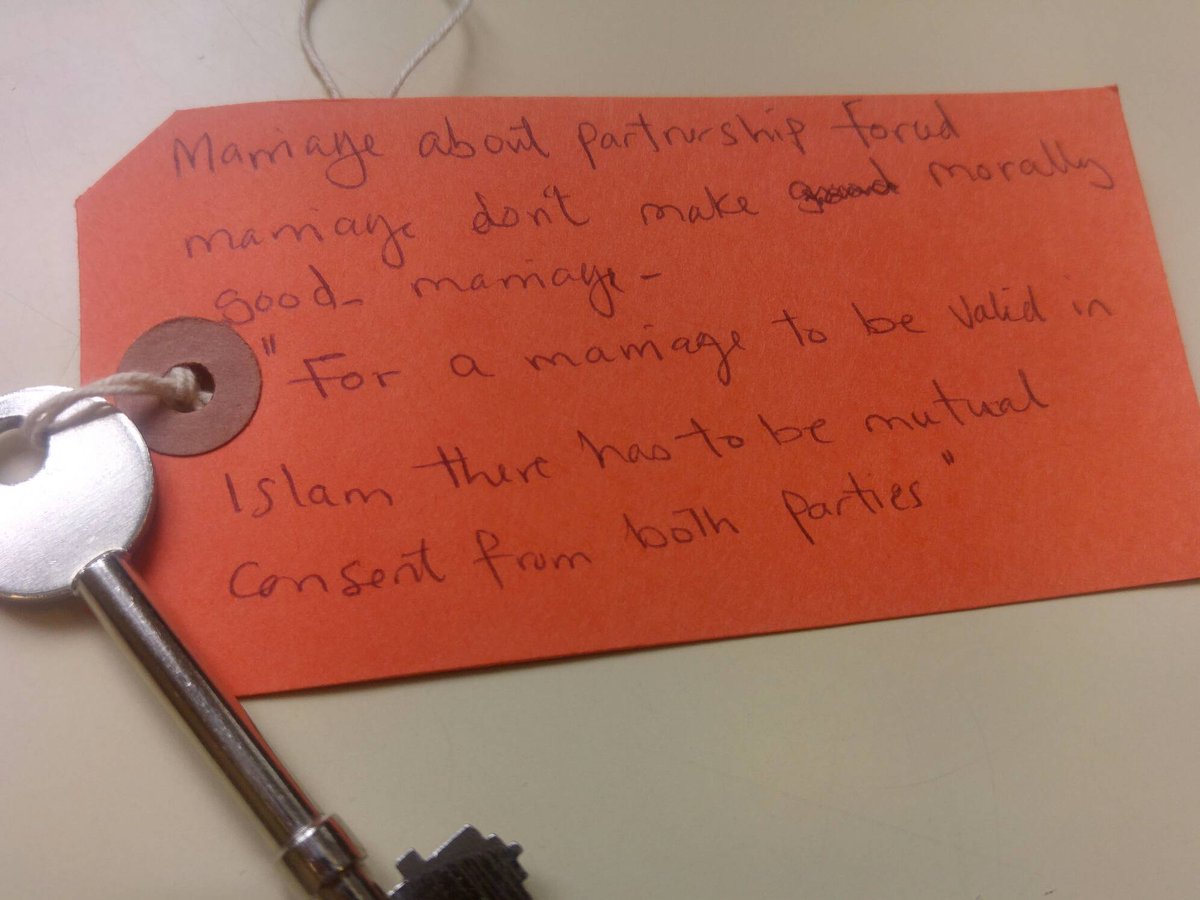 Marriage about partnership forced
marriage don't make good morally
good- marriage-
"For a marriage to be valid in
Islam there has to be mutual
consent from both parties"